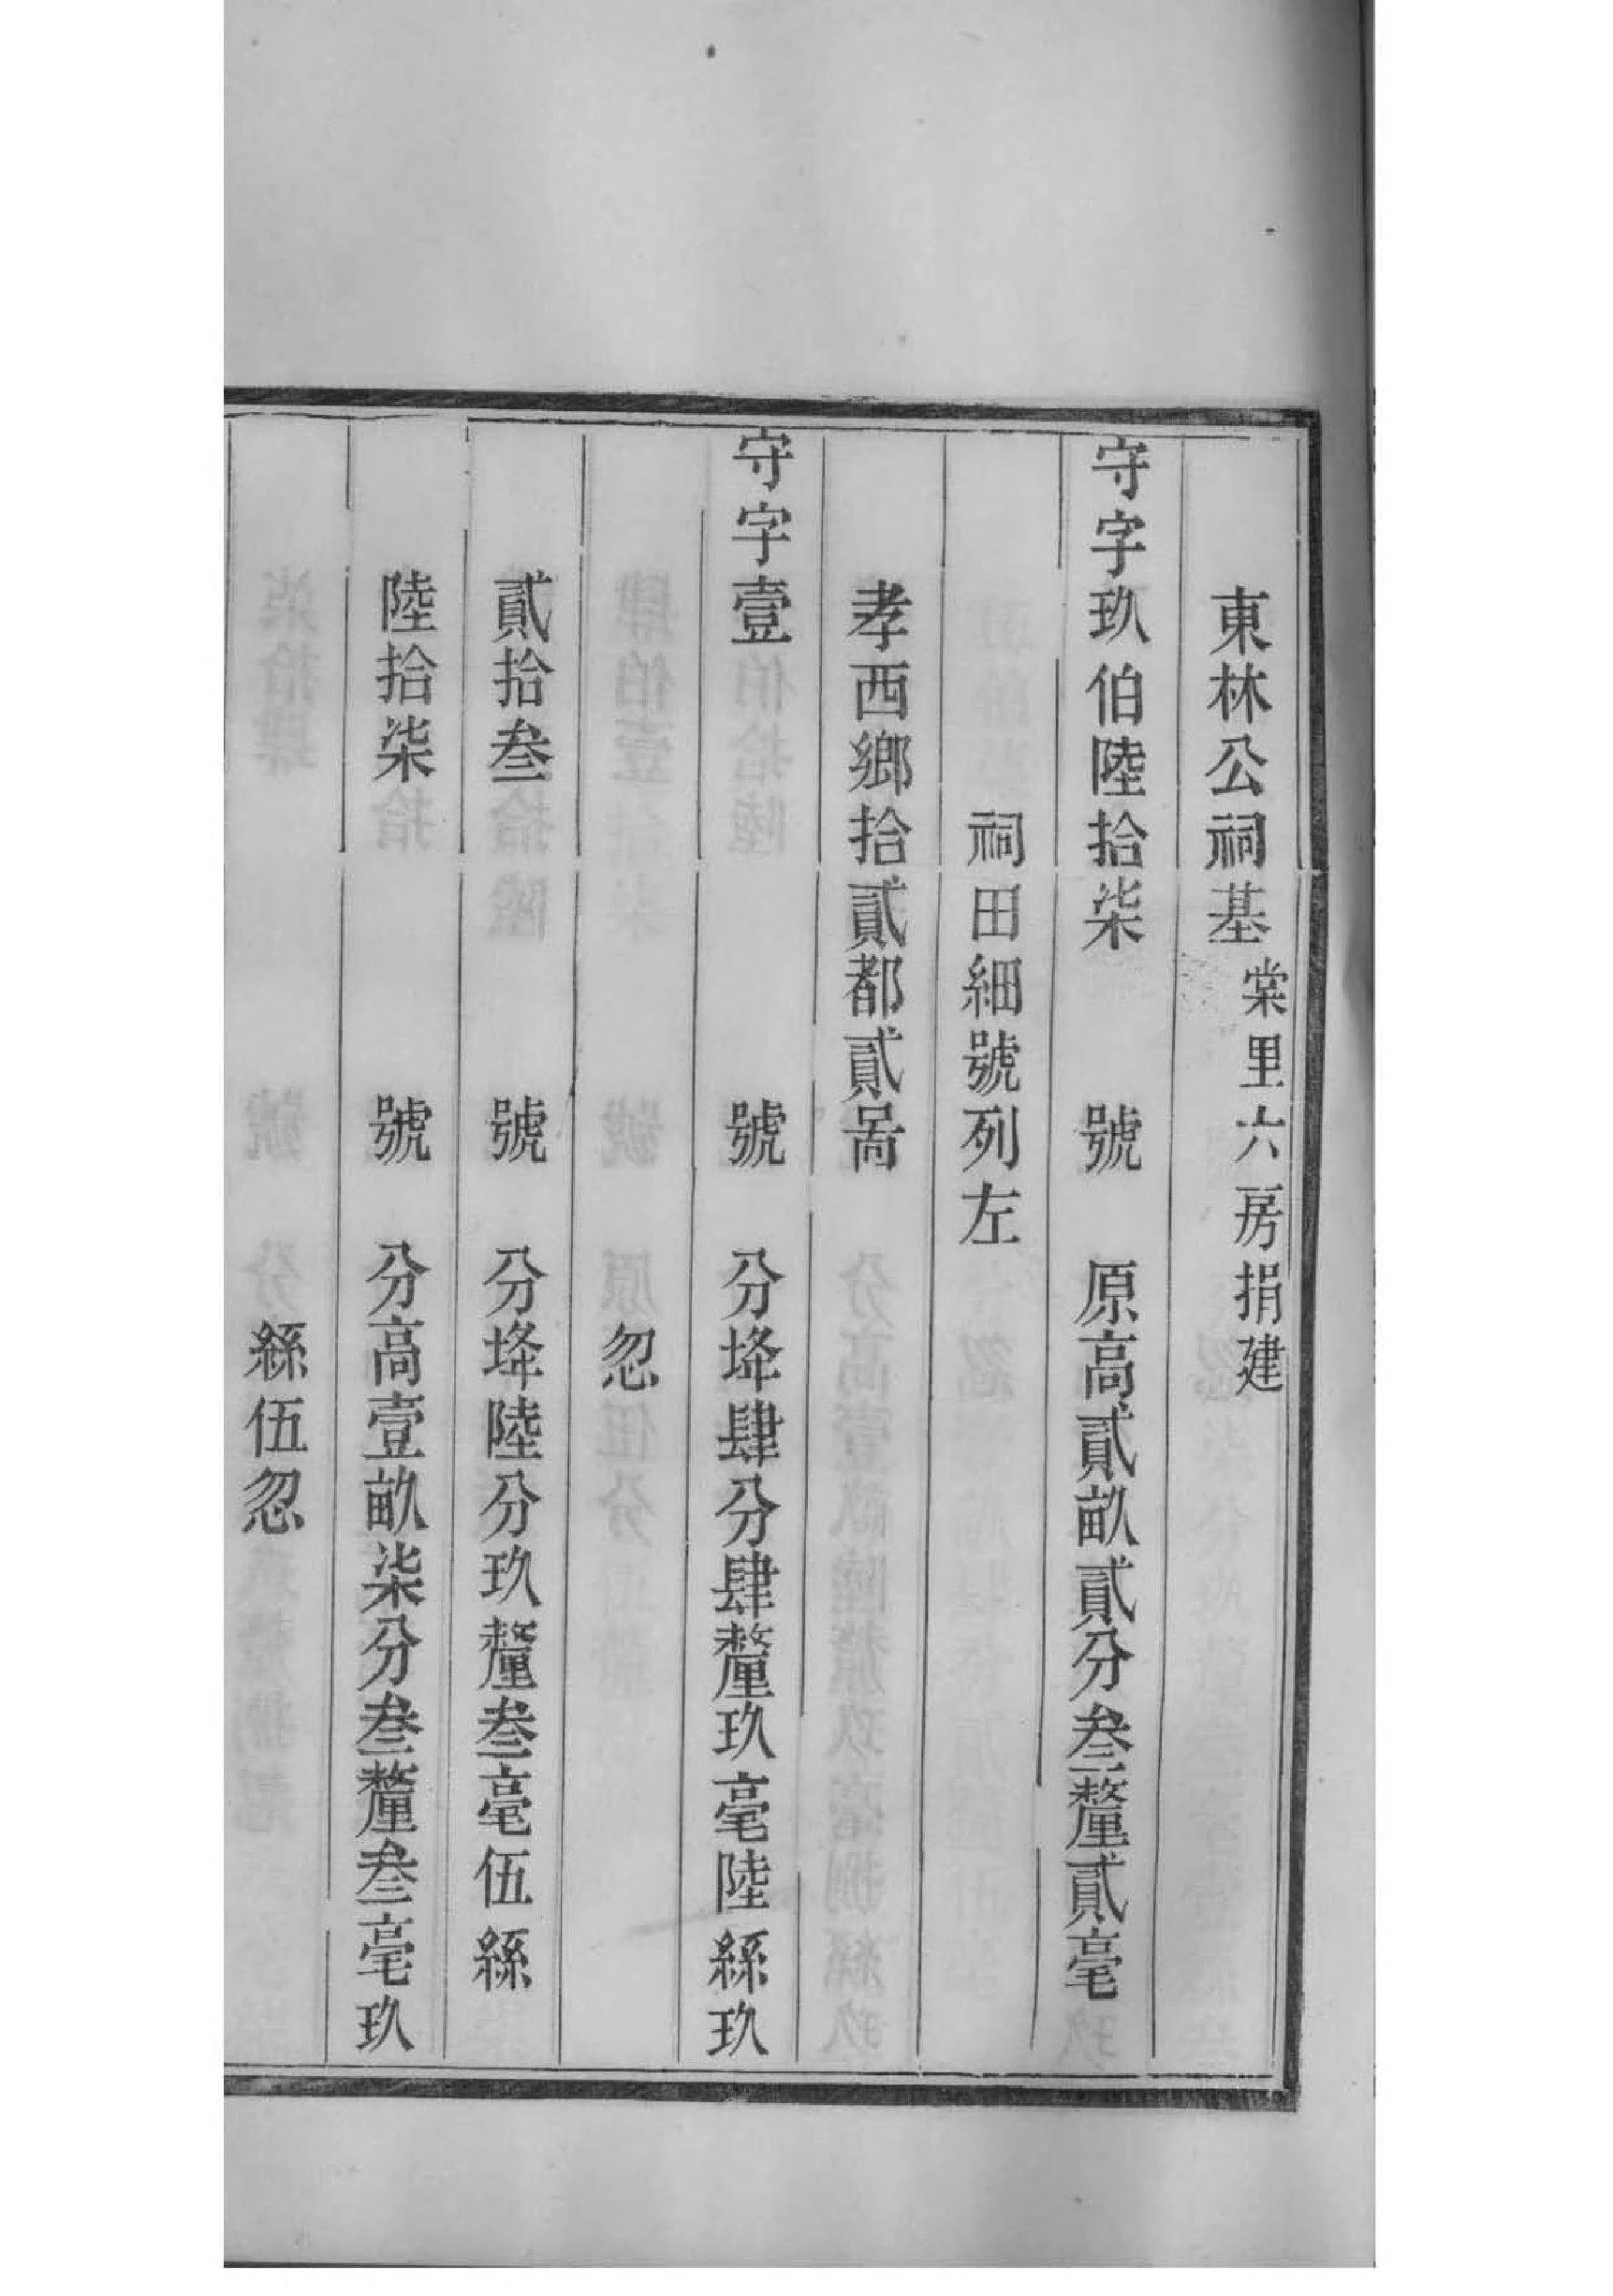 東林公祠基棠里六房捐建
守字玖伯陸拾柒 號 原高貳畝貳分叁釐貳毫
祠田細號列左
孝西鄉拾貳都貳啚
守字壹 號 分埄肆分肆釐玖毫陸絲玖
忽
貳拾叁 號 分埄陸分玖釐叁毫伍絲
陸拾柒 號 分高壹畝柒分叁釐叁毫玖
絲伍忽